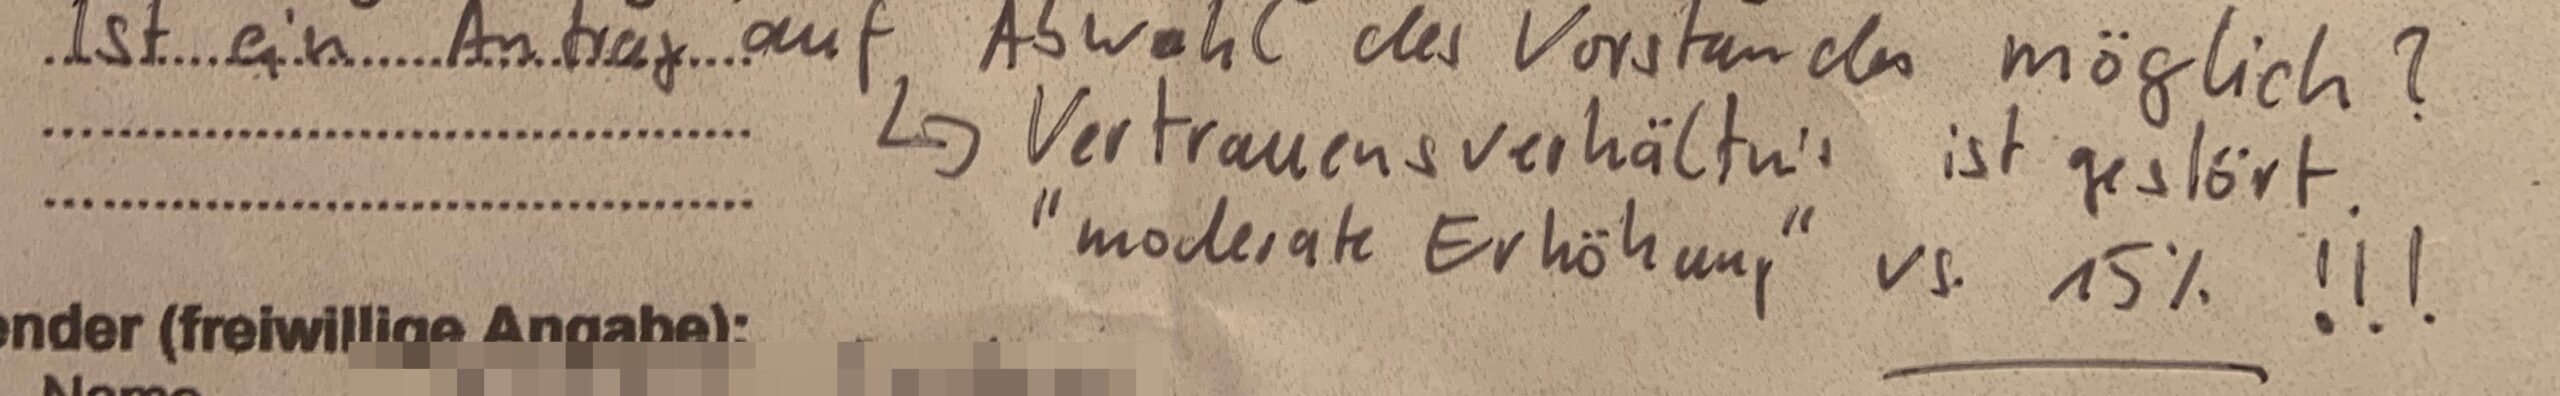 Ist ein Antrag auf Abwahl des Vorstandes möglich?
↳ Vertrauensverhältnis ist gestört.
"moderate Erhöhung" vs. 15% !!!
ender (freiwillige Angabe):
Name